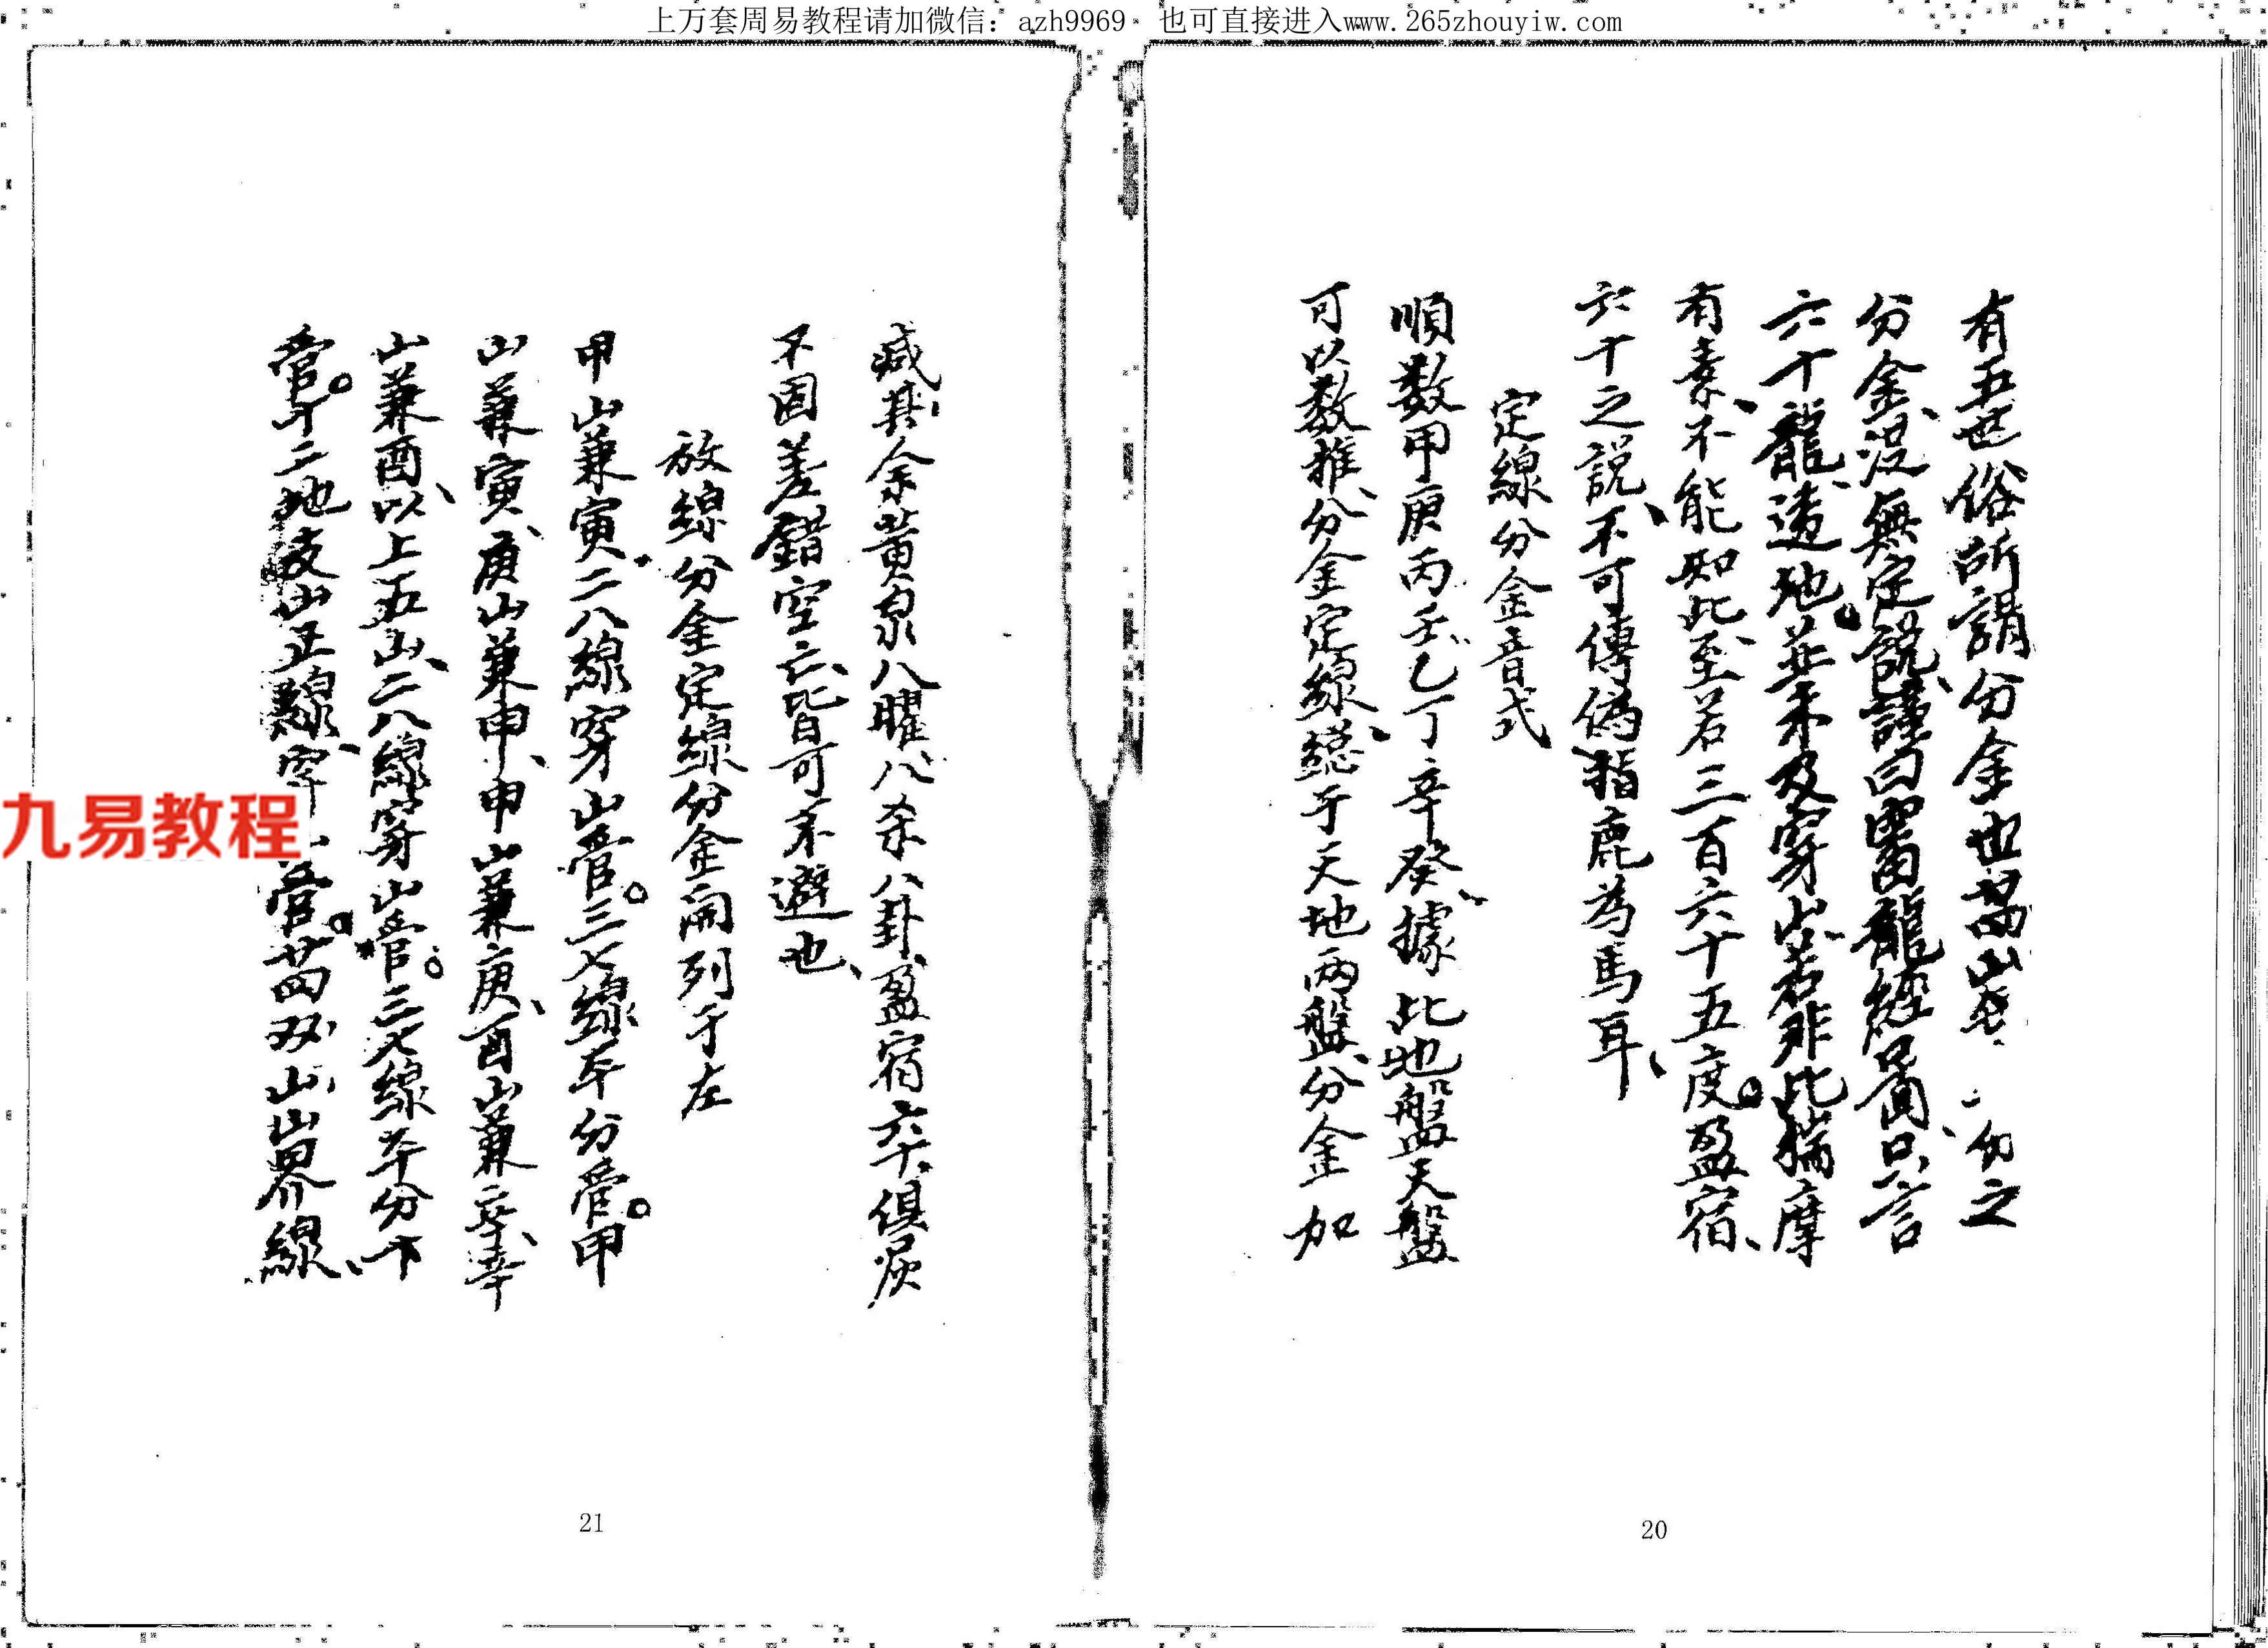 上万套周易教程请加微信：azh9969 也可直接进入www.265zhouyiw.com
有五世俗所謂分金也苗山 分之
分金没無定說謹曰雷龍經啇只言
六十龍透地並未及穿山若非比揣摩
有素、不能知此至若三百六十五度。盈宿、
六十之說、不可傳偽指鹿為馬耳、
定線分金音式
順数甲庚丙壬乙丁辛癸、據此地盤天盤
可以数推、分金定線、総于天地両盤、分金加
20
臧其余黄泉八曜、八杀八卦、盈宿六十、俱灰
不因差錯空亡、皆可不避也、
放線分金定線分金開列于左
甲山兼寅、二八線穿山管。三七線平分管。甲
山兼寅、庚山兼申、申山兼庚、酉山兼辛、辛
山兼酉、以上五山、二八線穿山管。三七線平分下
管。十二地支山正線、穿山管。苗双山山界線、
21
九易教程